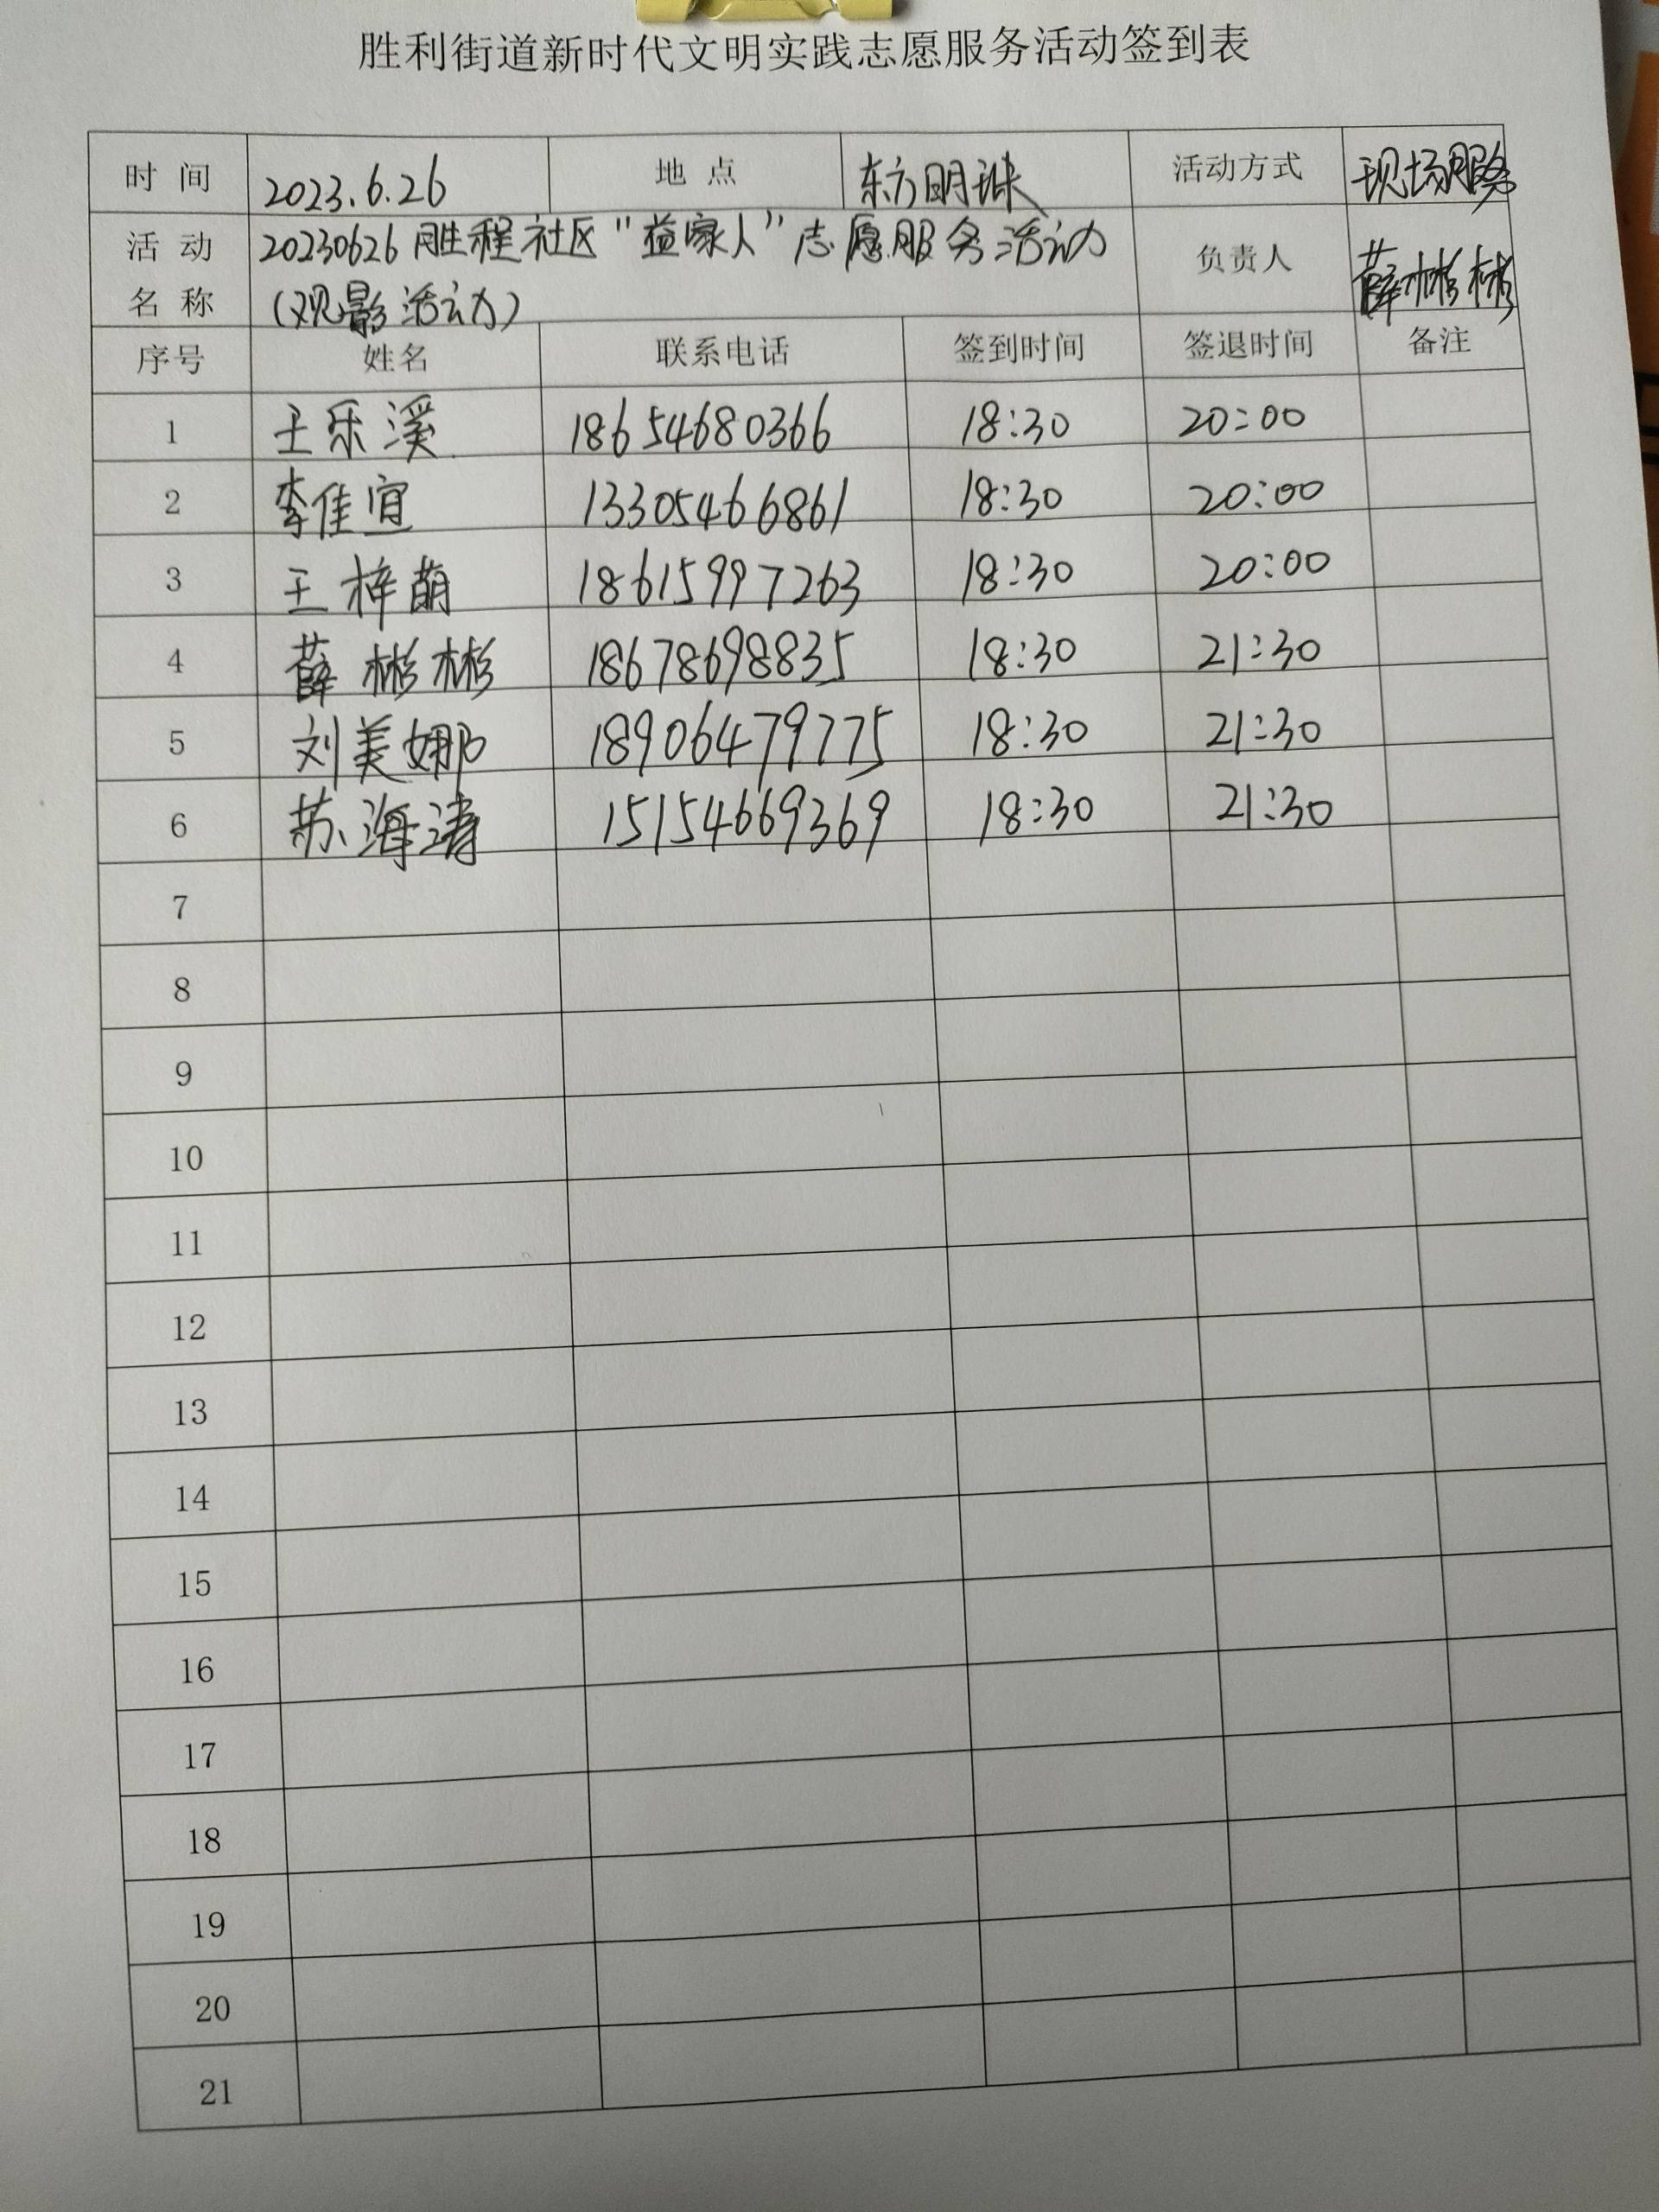 胜利街道新时代文明实践志愿服务活动签到表
时 间 2023.6.26 地 点 东方明珠 活动方式 现场服务
活 动 名 称 20230626胜程社区“益家人”志愿服务活动 负责人 薛彬彬
(观影活动)
序号 姓名 联系电话 签到时间 签退时间 备注
1 王乐溪 18654680366 18:30 20:00
2 李佳宜 13305466861 18:30 20:00
3 王梓萌 18615997263 18:30 20:00
4 薛彬彬 18678698835 18:30 21:30
5 刘美娜 18906479775 18:30 21:30
6 苏海涛 15154669369 18:30 21:30
7
8
9
10
11
12
13
14
15
16
17
18
19
20
21